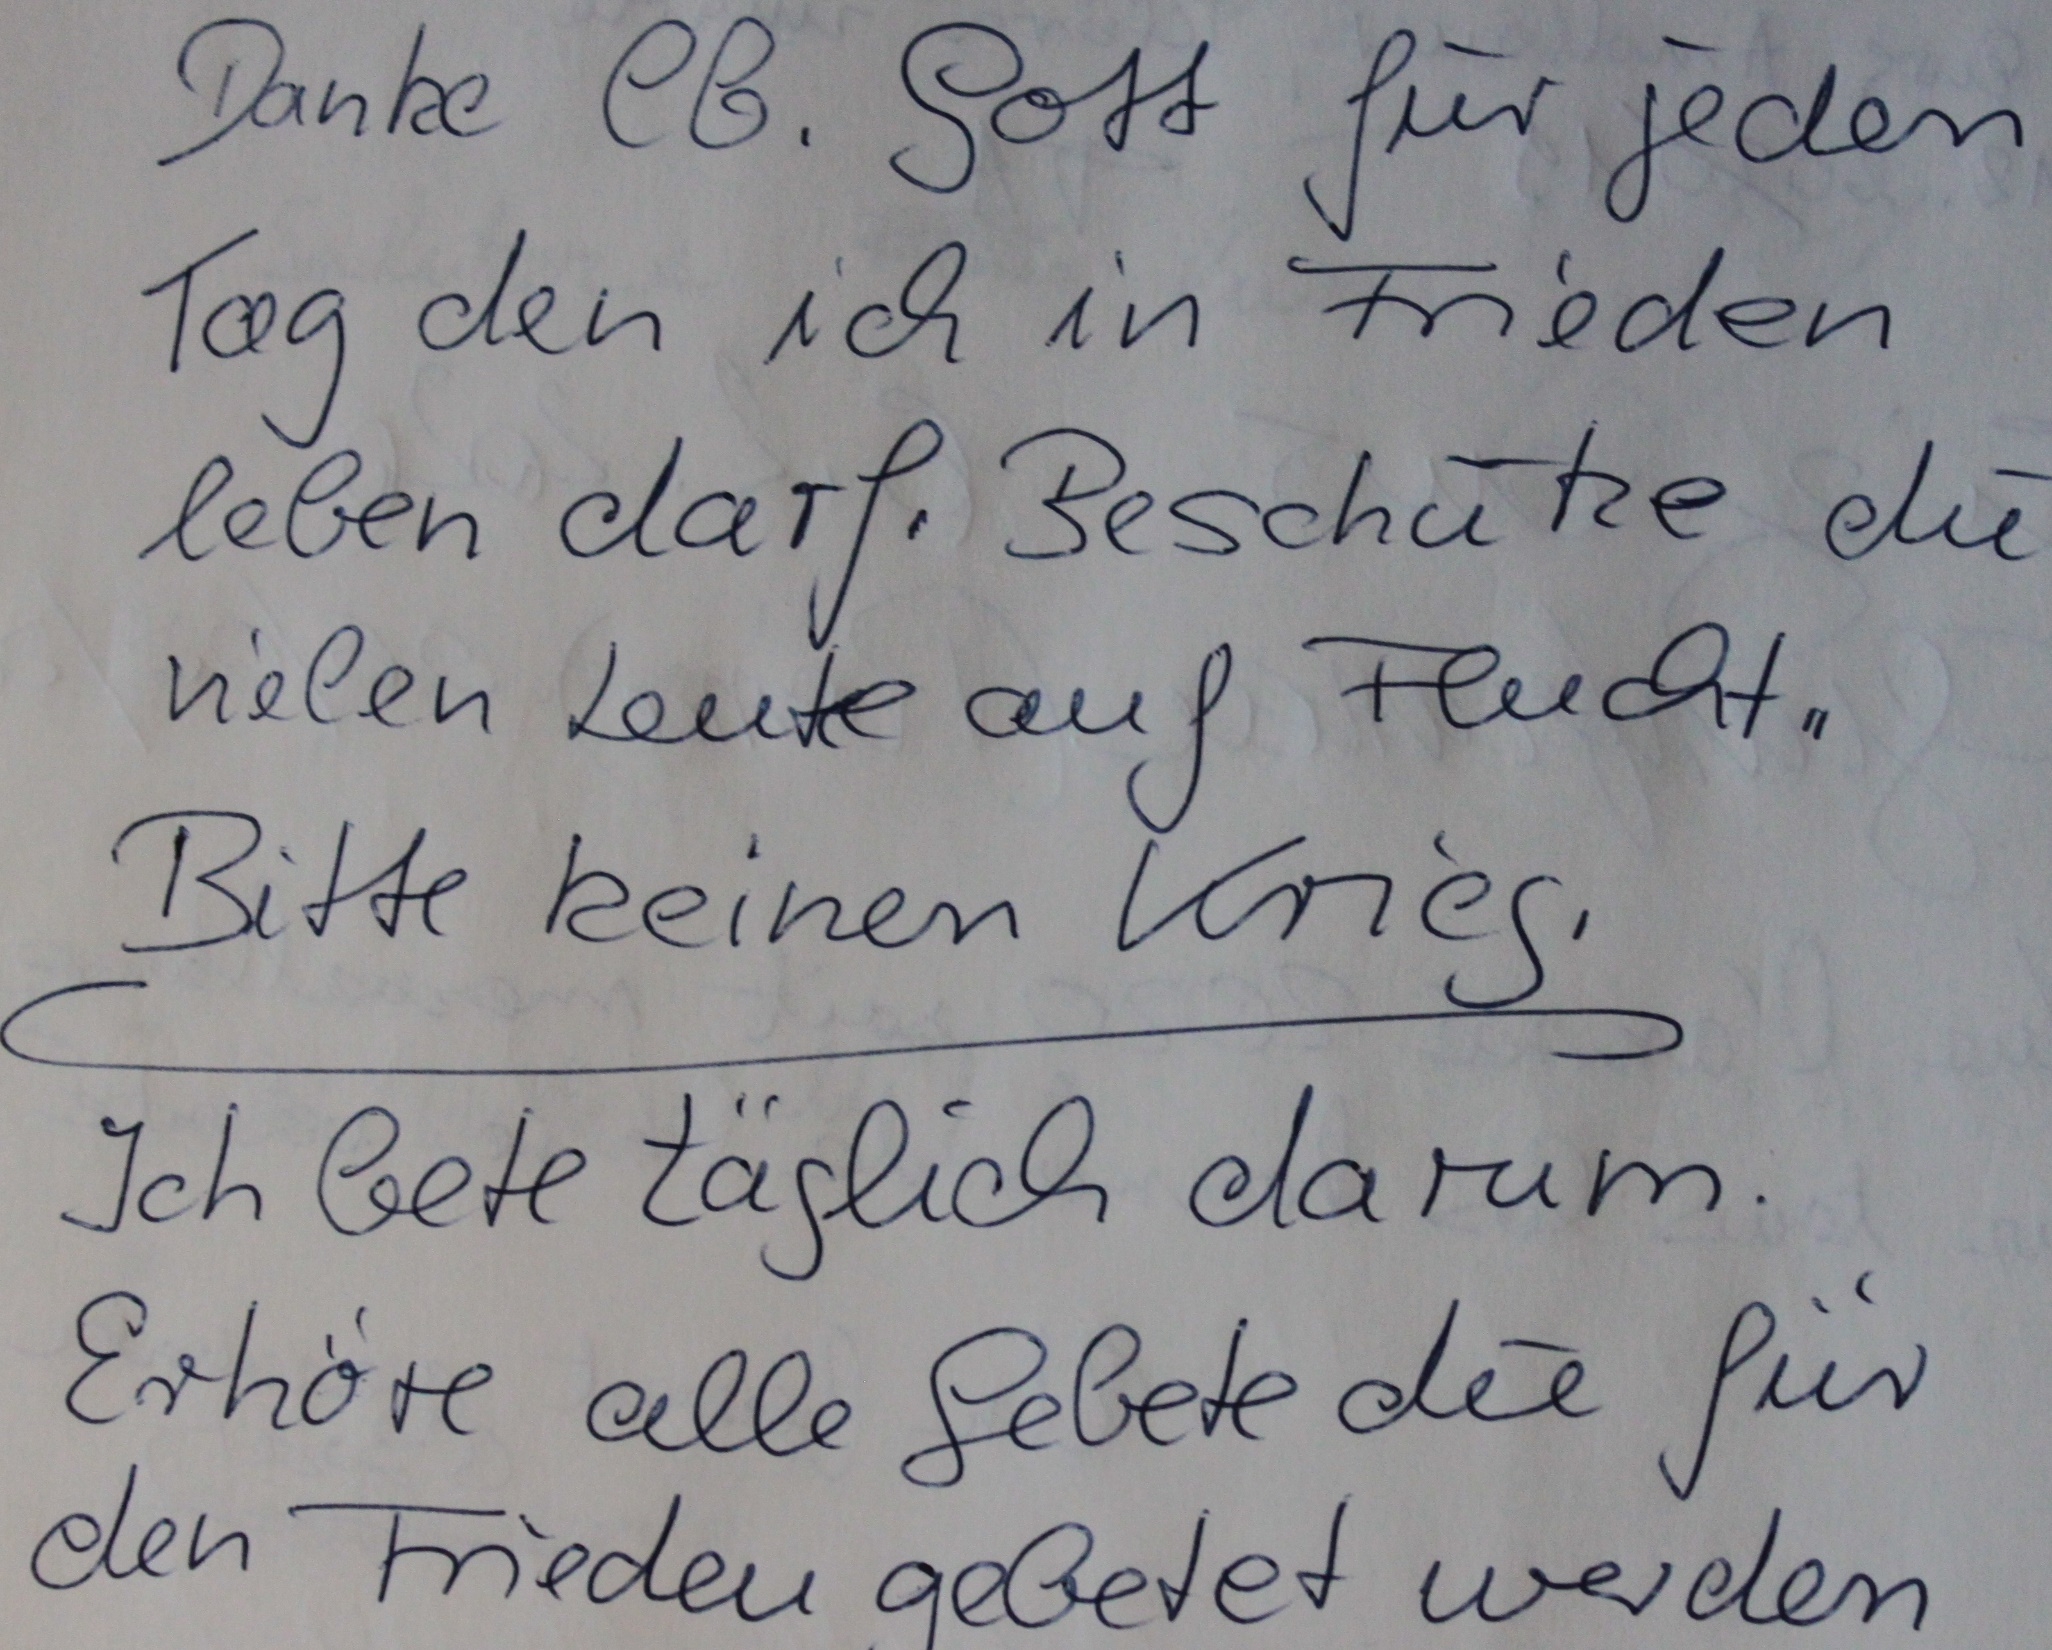 Danke lb. Gott für jeden
Tag den ich in Frieden
leben darf. Beschütze die
vielen Leute auf Flucht.
Bitte keinen Krieg.
Ich bete täglich darum.
Erhöre alle Gebete die für
den Frieden gebetet werden